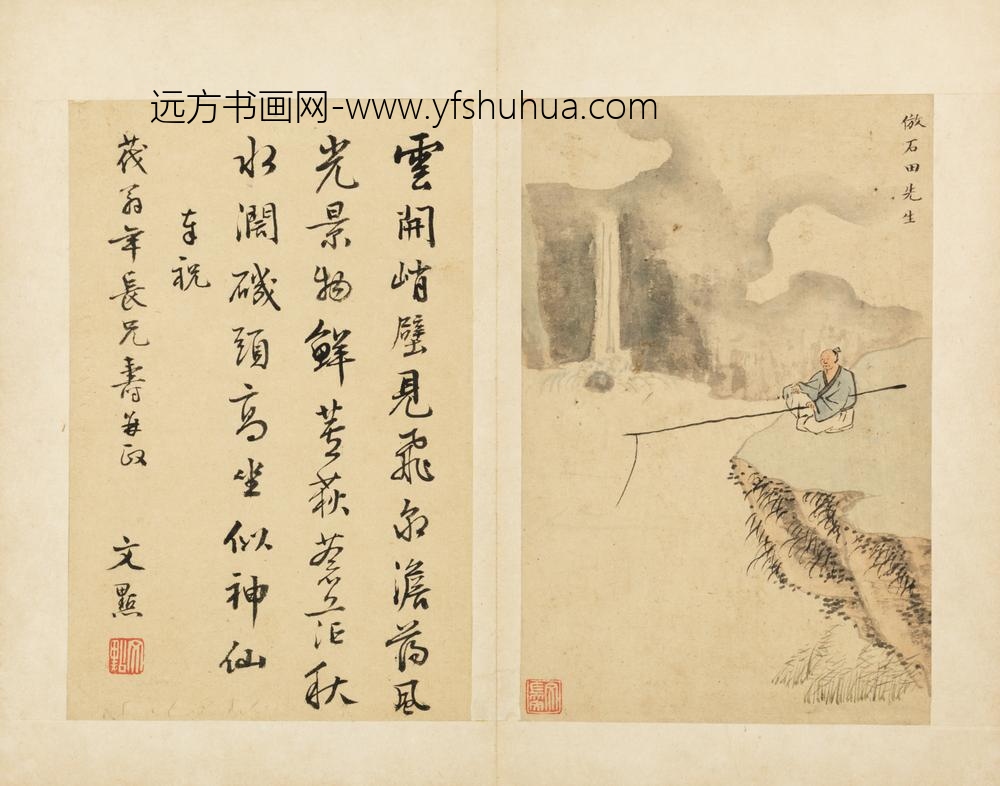 远方书画网-www.yfshuhua.com
倣石田先生
雲開峭壁見飛泉澹蕩風
光景物鮮蘆荻蒼茫秋
水濶磯頭高坐似神仙
奉祝
茂翁年長兄壽并政
文點
文點